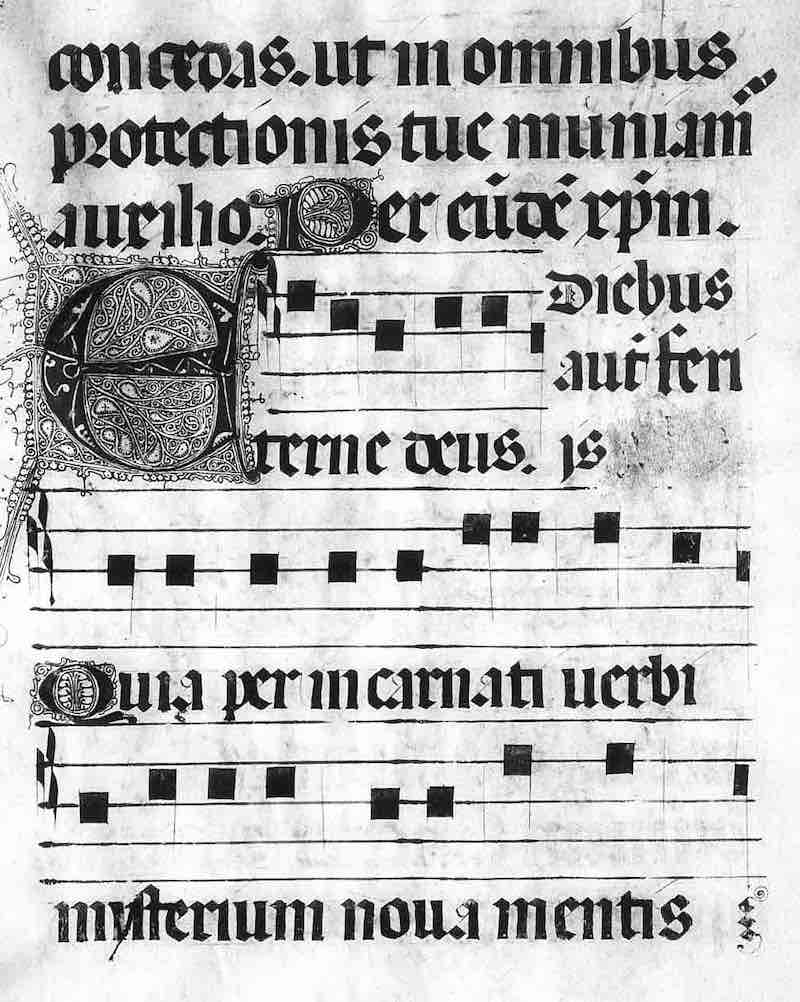 concedas. ut in omnibus
protectionis tue muniam̄
auxilio. Per eūdē xp̄m.
Diebus
aut̄ feri
Eterne deus. is
Quia per incarnati uerbi
mysterium noua mentis